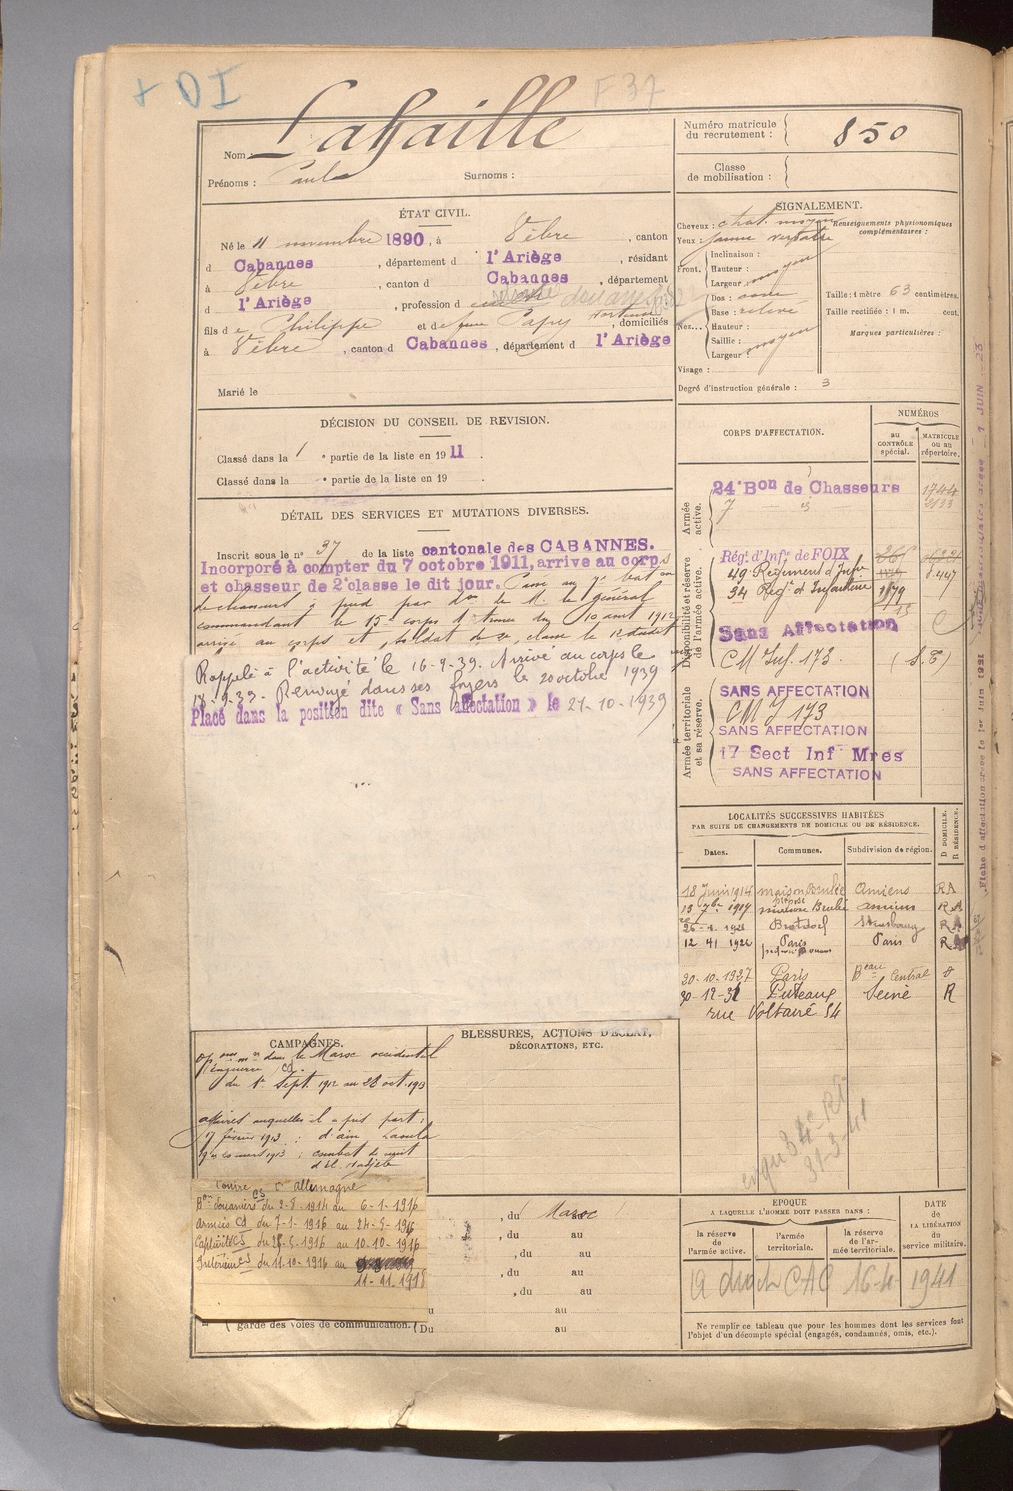 + DI
F 37
Nom Lafaille
Prénoms : Paul
Surnoms :
Numéro matricule du recrutement : 850
Classe de mobilisation :
ÉTAT CIVIL.
Né le 11 novembre 1890, à Vèbre, canton
d Cabannes, département d l'Ariège, résidant
à Vèbre, canton d Cabannes, département
d l'Ariège, profession d douanier
fils de Philippe et de feue Papy, domiciliés
à Vèbre, canton d Cabannes, département d l'Ariège
Marié le
SIGNALEMENT.
Cheveux : chat. moyen
Yeux : jaune verdatre
Renseignements physionomiques complémentaires :
Front. Inclinaison :
Hauteur : moyen
Largeur :
Nez... Dos :
Base : relevé
Hauteur :
Saillie : moyen
Largeur :
Visage :
Taille : 1 mètre 63 centimètres.
Taille rectifiée : 1 m. cent.
Marques particulières :
Degré d'instruction générale : 3
DÉCISION DU CONSEIL DE REVISION.
Classé dans la 1 e partie de la liste en 1911.
Classé dans la e partie de la liste en 19 .
DÉTAIL DES SERVICES ET MUTATIONS DIVERSES.
Inscrit sous le n° 37 de la liste cantonale des CABANNES.
Incorporé à compter du 7 octobre 1911, arrivé au corps
et chasseur de 2e classe le dit jour. Passé au 7e bat on
de chasseurs à pied par Don de M. le général
commandant le 15e corps d'armée du 10 aout 1912
arrivé au corps et soldat de 2e classe le 12 dudit
Rappelé à l'activité le 16-9-39. Arrivé au corps le
18-9-39. Renvoyé dans ses foyers le 20 octobre 1939
Placé dans la position dite « Sans affectation » le 21-10-1939
CORPS D'AFFECTATION.
NUMÉROS
au contrôle spécial.
MATRICULE ou au répertoire.
Armée active.
24e Bon de Chasseurs 1744
7 d 2133
Disponibilité et réserve de l'armée active.
Régt d'Infie de FOIX
49 Régiment d'Infie 8.447
34 Régt d'Infanterie 1879
Sans Affectation
CM Inf. 173. (S.E)
Armée territoriale et sa réserve.
SANS AFFECTATION
CM I 173
SANS AFFECTATION
17 Sect Inf Mres
SANS AFFECTATION
LOCALITÉS SUCCESSIVES HABITÉES
PAR SUITE DE CHANGEMENTS DE DOMICILE OU DE RÉSIDENCE.
Dates. Communes. Subdivision de région. D DOMICILE. R RÉSIDENCE.
18 Juin 1914 maison Brulée Amiens R
13 7bre 1919 maison Brulée amiens R
26-1-1921 Strasbourg R
12 41 1922 Paris Paris R
20-10-1927 Paris Beau Central d
30-12-32 Puteaux Seine R
rue Voltaire 54
CAMPAGNES.
dans le Maroc occidental
du 1er Sept. 1912 au 28 oct. 1913
affaires auxquelles il a pris part :
17 février 1913 : d'ain
19 et 20 mars 1913 : combat de nuit
Contre l'allemagne
Bon douaniers CS du 2-8-1914 au 6-1-1916
Armées CD du 7-1-1916 au 24-5-1916
Captivité CS du 25-5-1916 au 10-10-1916
Intérieur CS du 11-10-1916 au
11-11-1918
BLESSURES, ACTIONS D'ÉCLAT,
DÉCORATIONS, ETC.
, du Maroc
, du au
, du au
, du au
, du au
au
garde des voies de communication. (Du au
jusqu'à
31-3-41
EPOQUE
A LAQUELLE L'HOMME DOIT PASSER DANS :
la réserve de l'armée active.
l'armée territoriale.
la réserve de l'armée territoriale.
DATE de LA LIBÉRATION du service militaire.
a droit CAC 16-4- 1941
Ne remplir ce tableau que pour les hommes dont les services font
l'objet d'un décompte spécial (engagés, condamnés, omis, etc.).